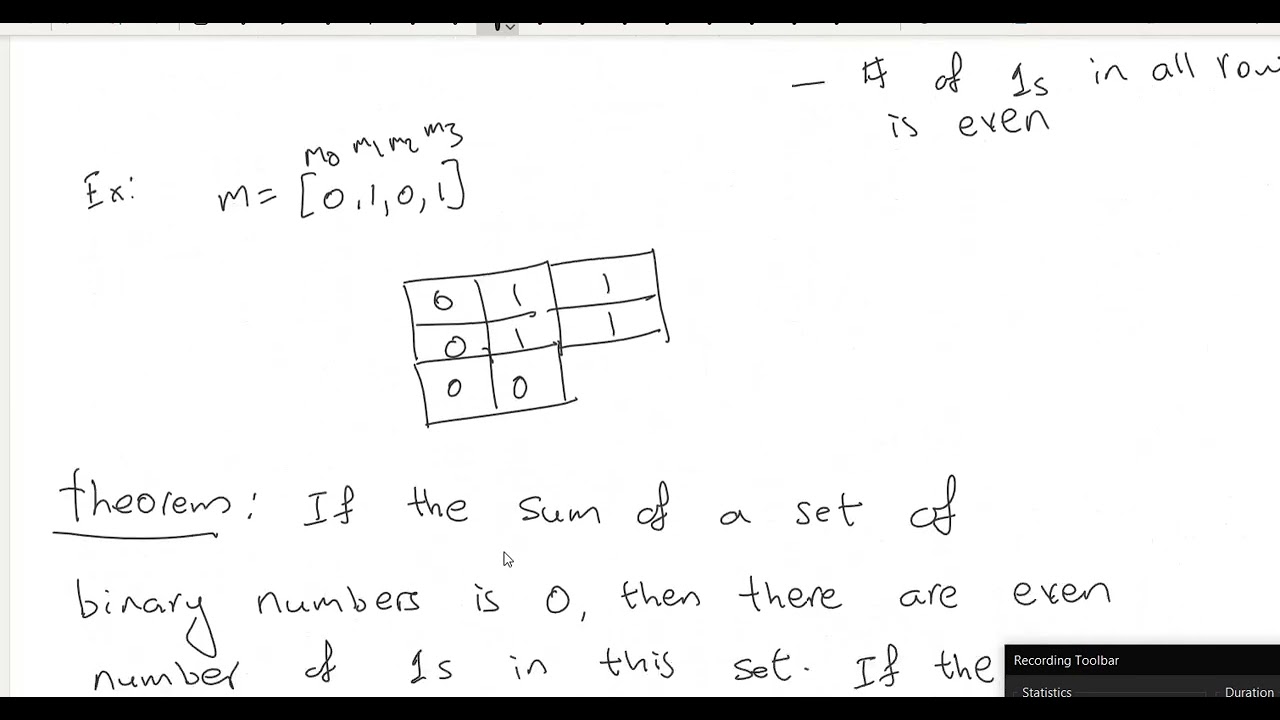 — # of 1s in all row
is even
m0 m1 m2 m3
Ex: m = [0,1,0,1]
0 1 1
0 1 1
0 0
theorem: If the sum of a set of
binary numbers is 0, then there are even
number of 1s in this set. If the
Recording Toolbar
Statistics Duration